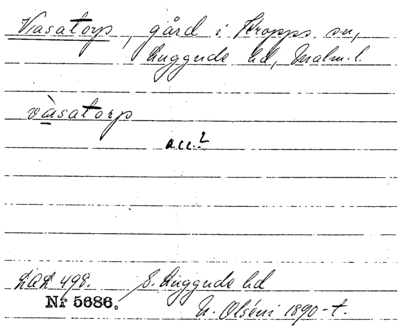 Vasatorp, gård i Kropps sn,
Luggude hd, Malm. l.
vàsatorp
acc. 2
LAL 498. S. Luggude hd
Nr 5686. N. Olséni 1890-t.